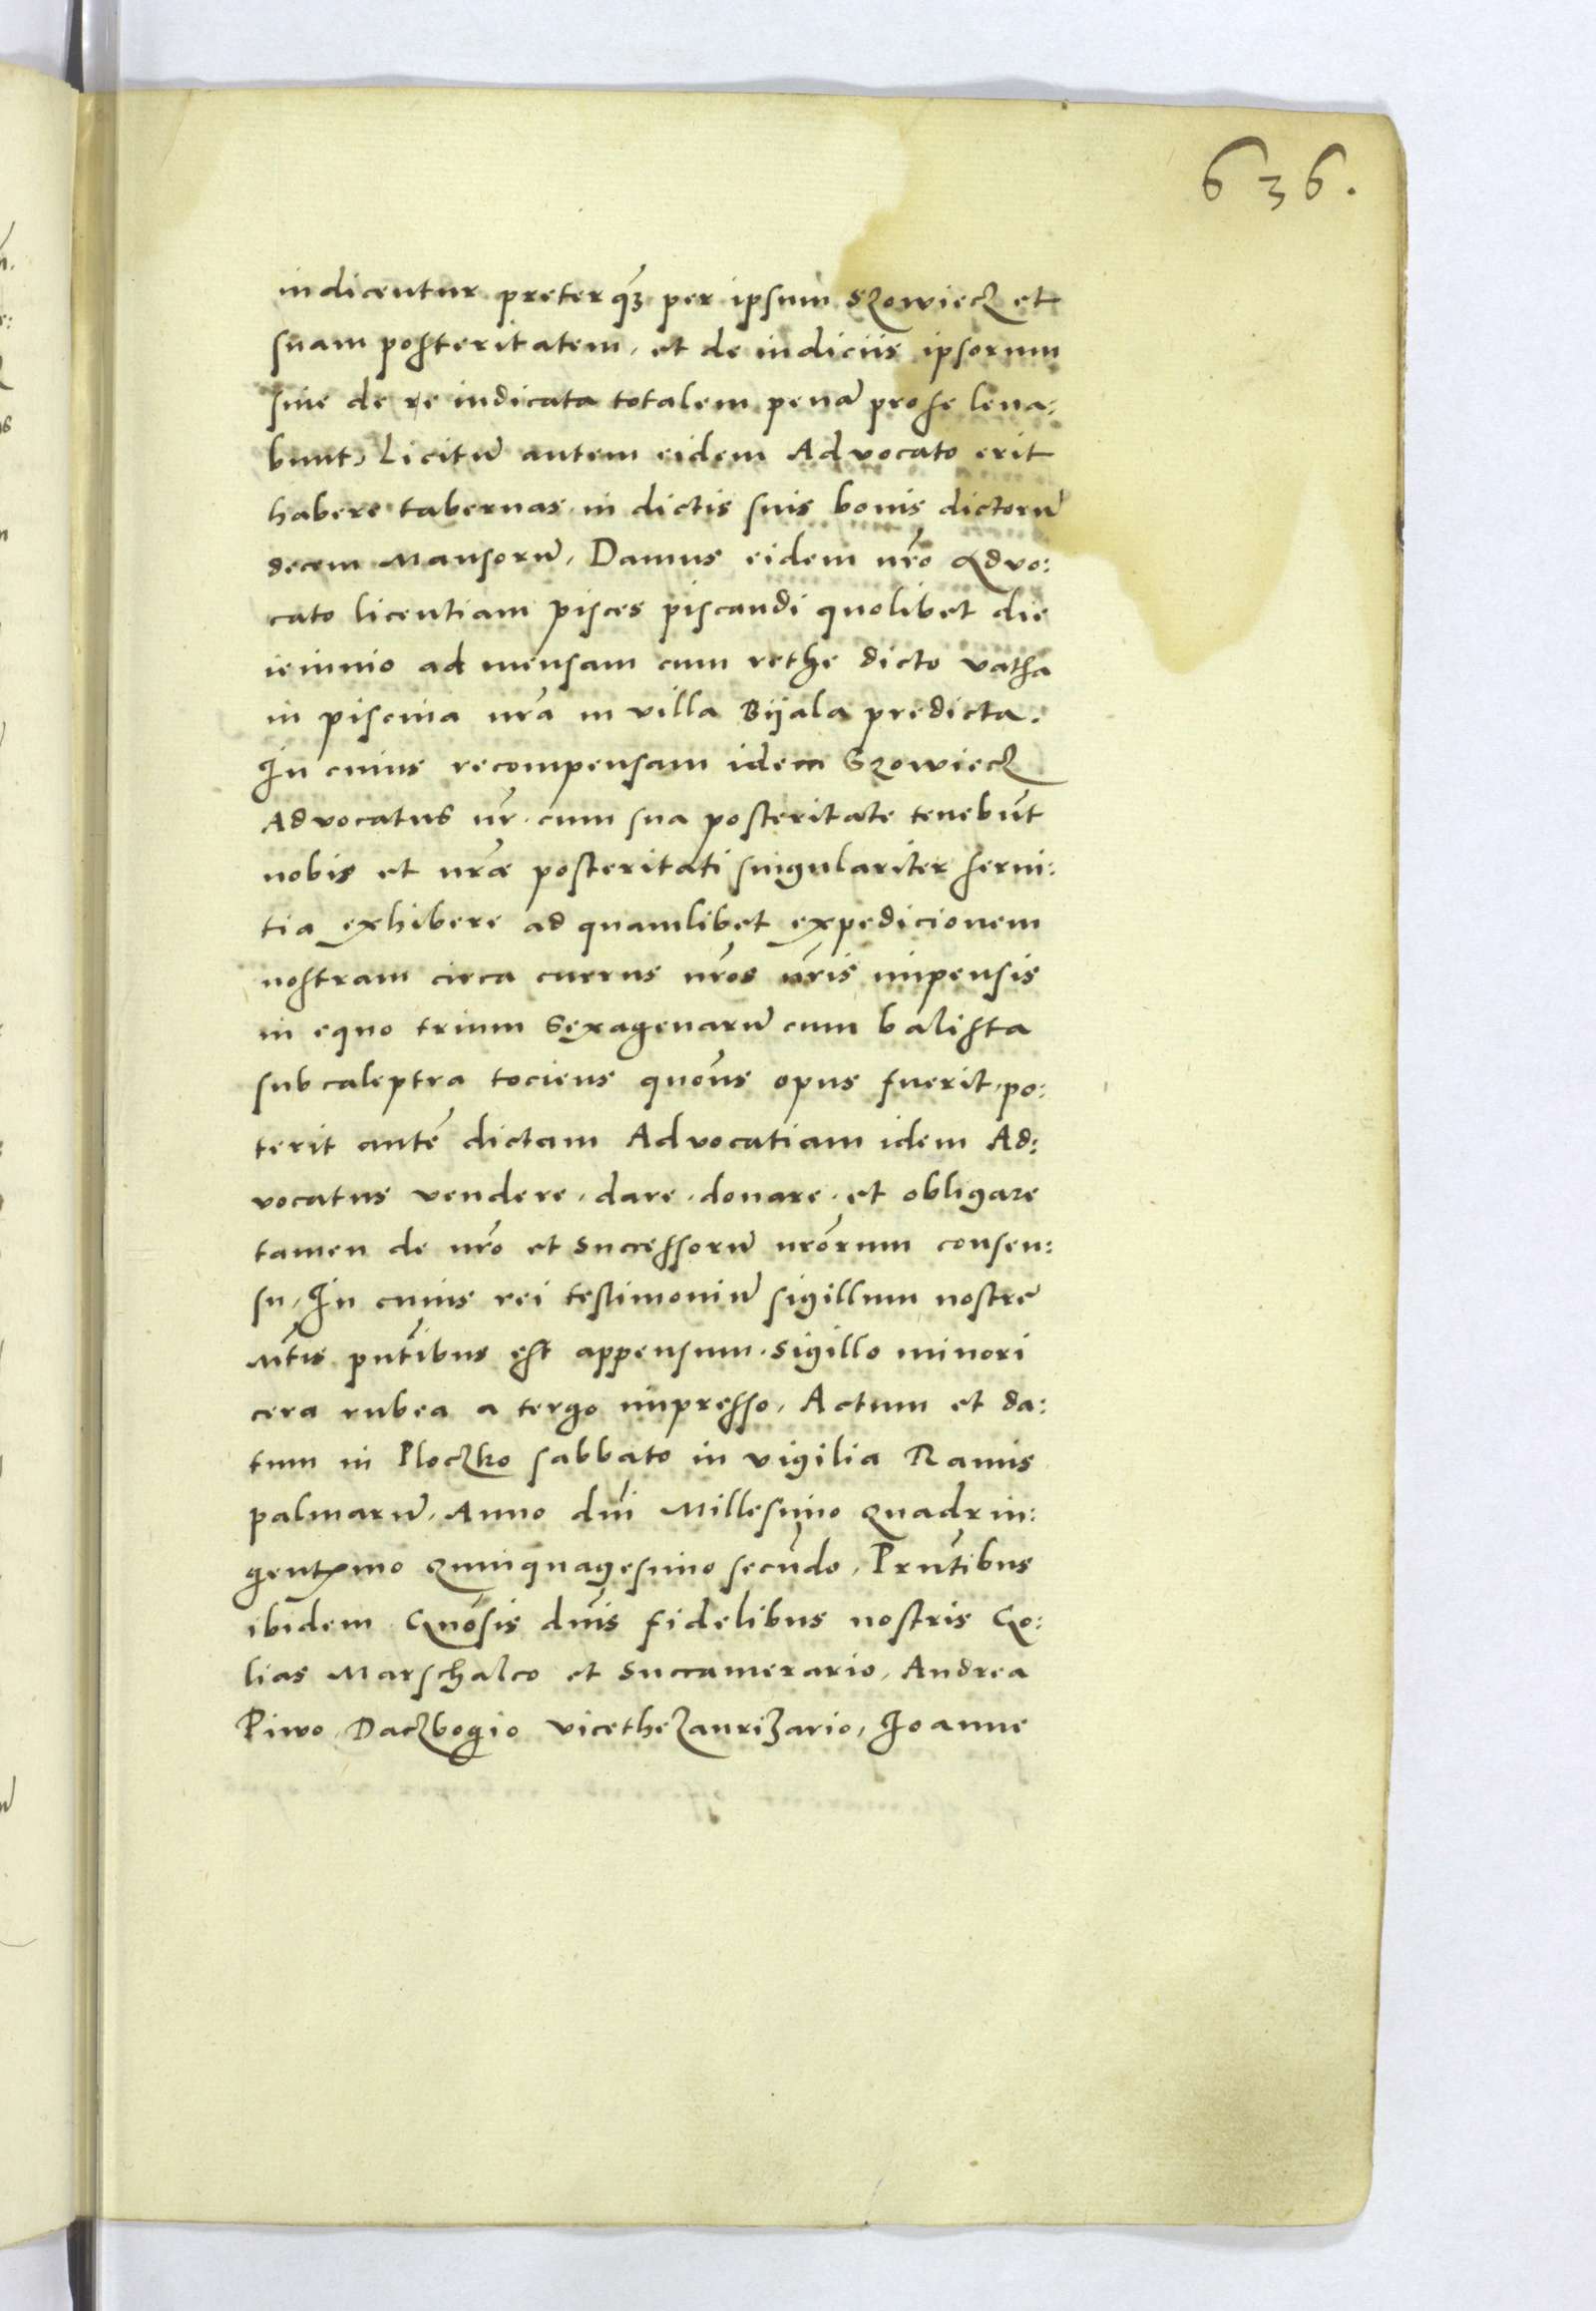 636.
iudicentur preterq̃ꝫ per ipsum Szowieck et
suam posteritatem, et de iudiciis ipsorum
siue de re iudicata totalem penā prose leua:
bunt, Licitū autem eidem Advocato erit
habere tabernas in dictis suis bonis dictorū
decem Mansorū, Damus eidem nr̃o Advo:
cato licentiam pisces piscandi quolibet die
ieiunio ad mensam cum rethe dicto vatha
in piscina nr̃a in villa Bijala predicta.
In cuius recompensam idem Szowieck
Advocatus nr̃. cum sua posteritate tenebūt
nobis et nr̃æ posteritati singulariter serui:
tia exhibere ad quamlibet expedicionem
nostram circa currus nr̃os nr̃is impensis
in equo trium Sexagenarū cum balista
sub caleptra tociens quoñs opus fuerit, po:
terit autē dictam Advocatiam idem Ad:
vocatus vendere, dare, donare, et obligare
tamen de nr̃o et Successorū nr̃orum consen:
su, In cuius rei testimoniū sigillum nostrē
Mt̃is pñtibus est appensum. Sigillo minori
cera rubea a tergo impresso, Actum et da:
tum in Ploczko sabbato in vigilia Ramis
palmarū, Anno dñi Millesimo Quadrin:
gentxmo Quinquagesimo secūdo, Prñtibus
ibidem Gñosis dñis fidelibus nostris Go:
lias Marschalco et Succamerario, Andrea
Piwo, Daczbogio vicethezaurizario, Joanne